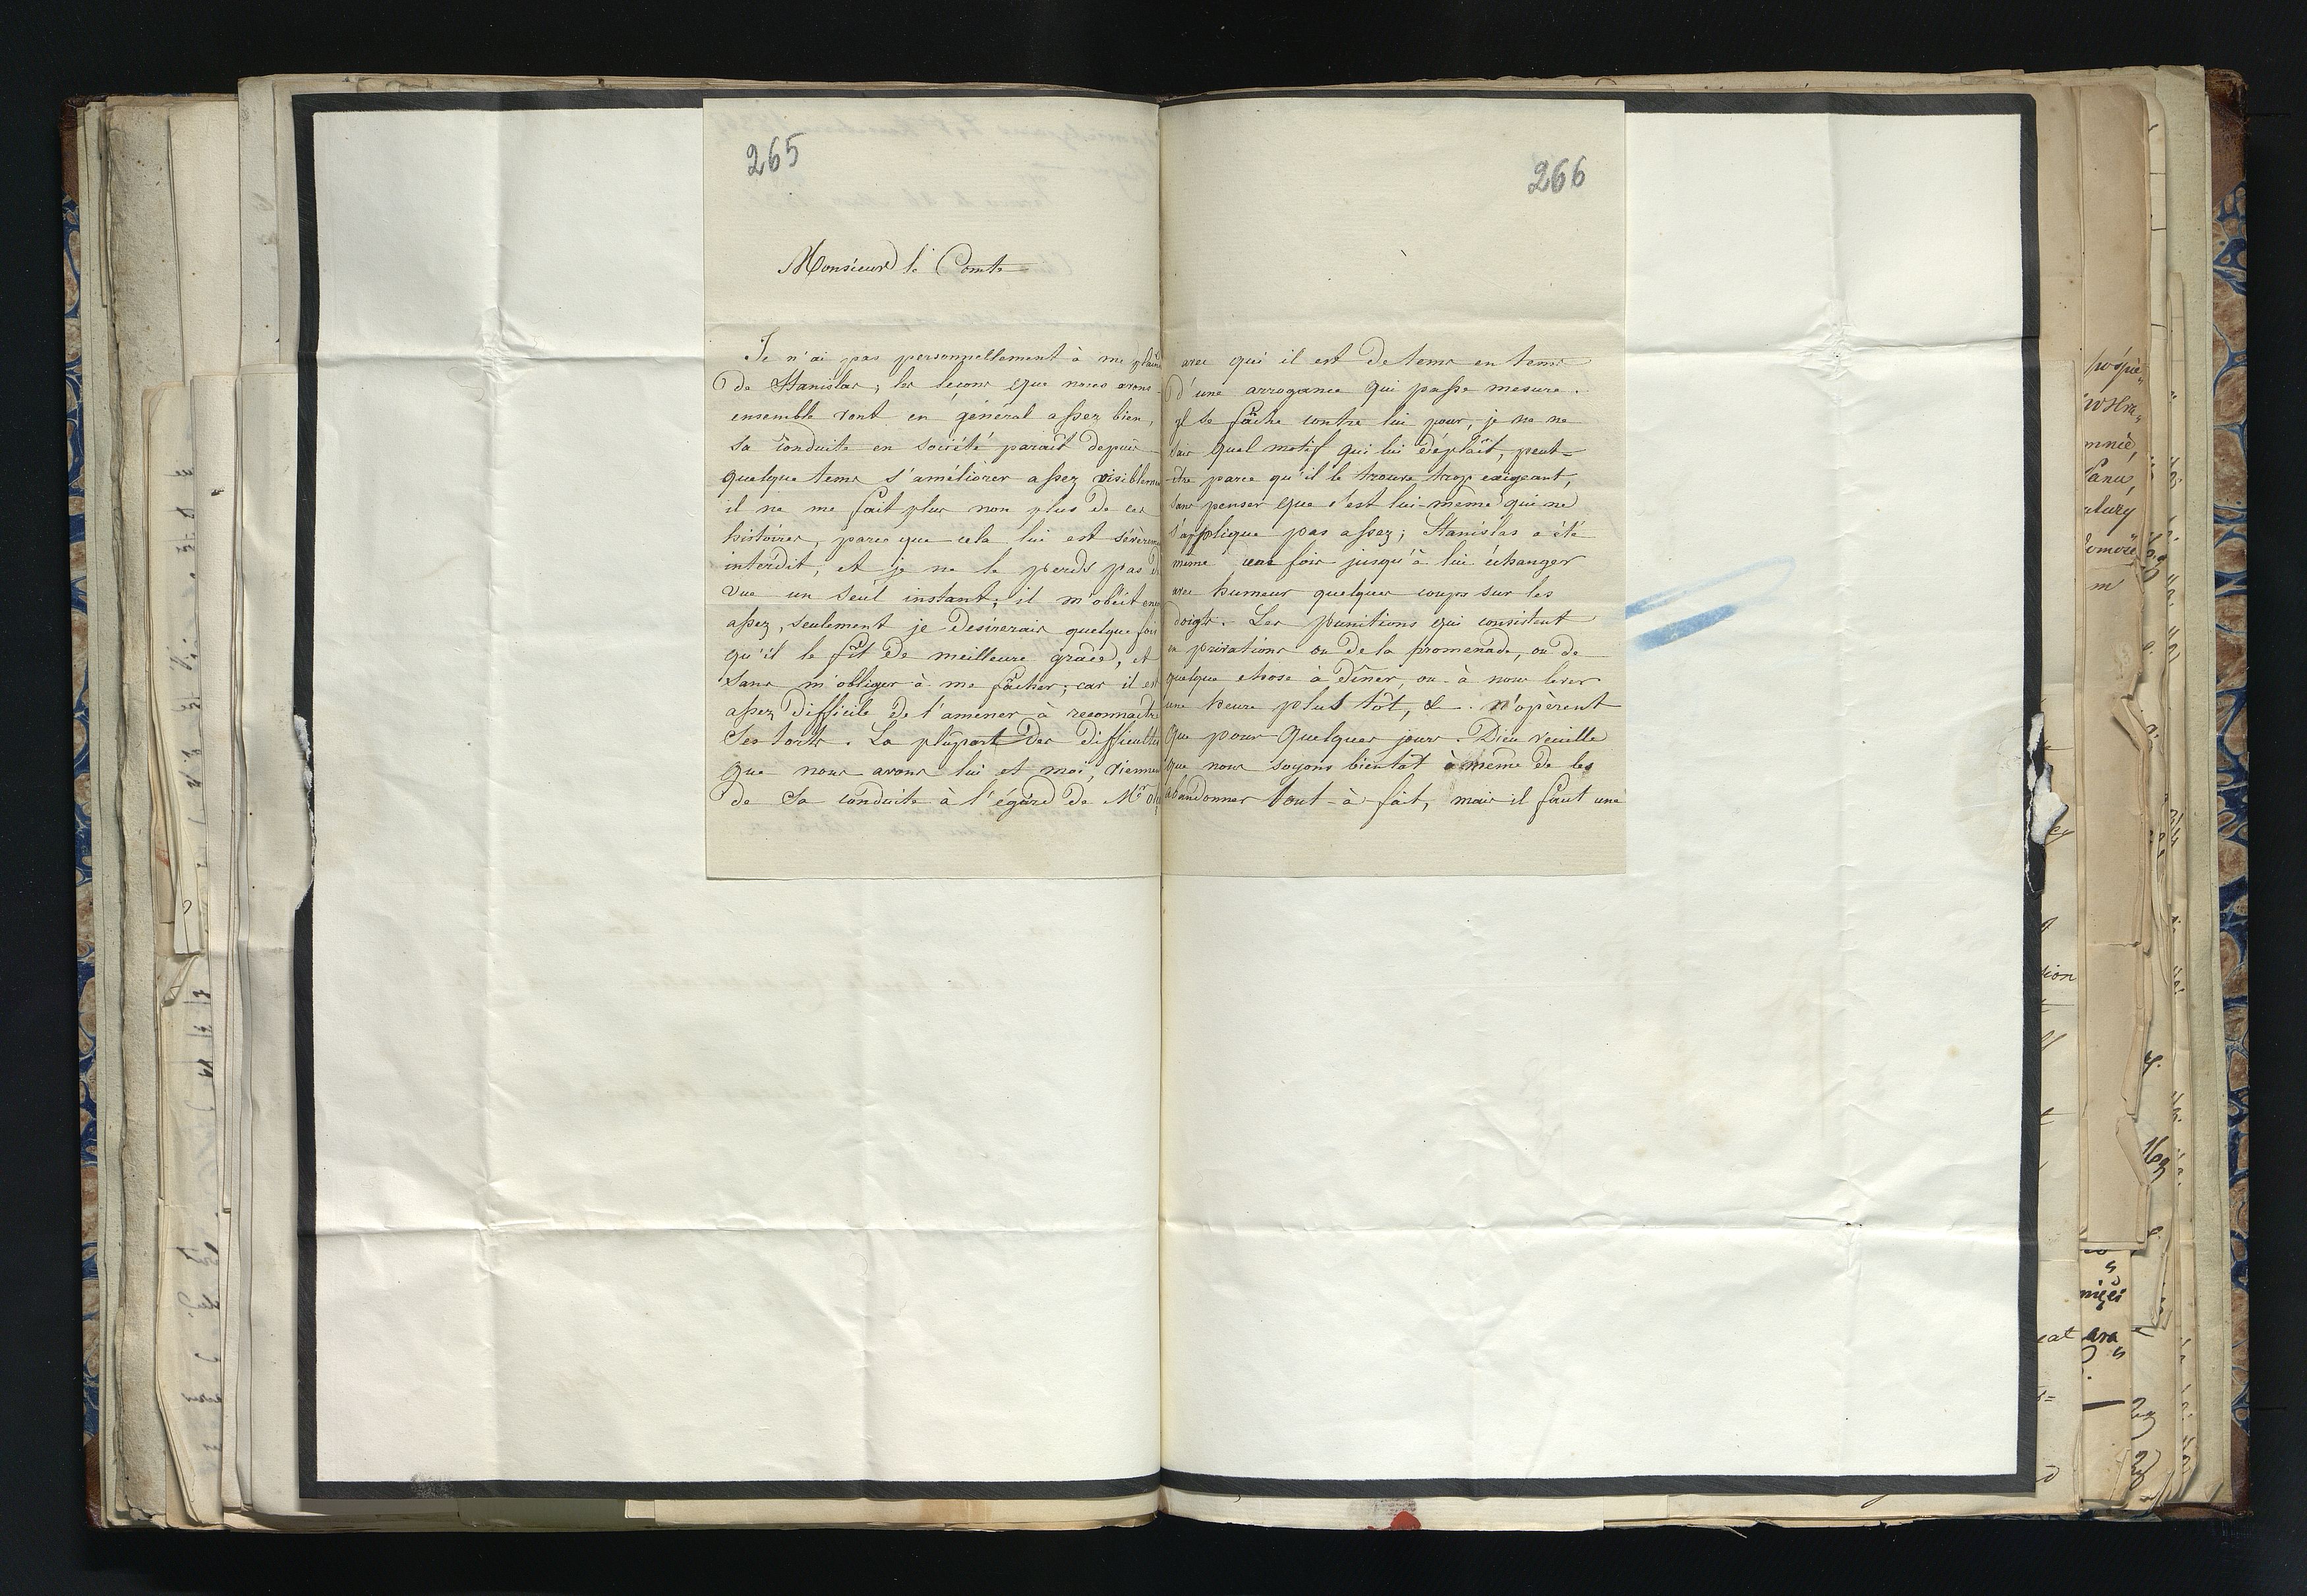 265
Monsieur le Comte
Je n'ai pas personnellement à me plain
de Stanislas, les leçons que nous avons
ensemble vont en général assez bien,
sa conduite en société parait depuis
quelque tems s'améliorer assez visibleme
il ne me fait plus non plus de ces
histoires, parce que cela lui est sévèrem
interdit, et je ne le perds pas d
vue un seul instant; il m'obéit enc
assez, seulement je desirerais quelque fois
qu'il le fît de meilleure grâce, et
sans m'obliger à me fâcher; car il est
assez difficile de l'amener à reconnaître
ses torts. La plûpart des difficultés
que nous avons lui et moi, viennen
de sa conduite à l'égard de Mr
266
avec qui il est de tems en tems
d'une arrogance qui passe mesure.
il se fâche contre lui pour, je ne ne
sais quel motif qui lui déplaît, peut-
être parce qu'il le trouve trop exigeant,
sans penser que c'est lui-même qui ne
s'applique pas assez; Stanislas a été
même une fois jusqu'à lui échanger
avec humeur quelques coups sur les
doigts. Les punitions qui consistent
en privations ou de la promenade, ou de
quelque chose à dîner, ou à nous lever
une heure plus tôt, &. n'opèrent
que pour quelques jours. Dieu veuille
que nous soyons bientôt à même de les
abandonner tout-à-fait, mais il faut une